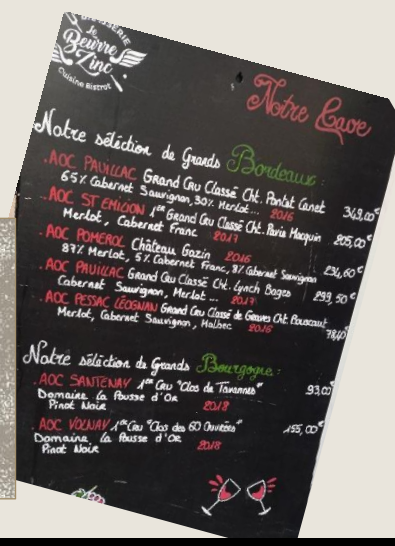 BRASSERIE
Le
Beurre
Zinc
Cuisine Bistrot
Notre Cave
Notre séléction de Grands Bordeaux:
. AOC PAUILLAC Grand Cru Classé Cht. Pontet Canet 349,00€
65% Cabernet Sauvignon, 30% Merlot... 2016
. AOC ST EMILION 1er Grand Cru Classé Cht. Pavie Macquin 205,00€
Merlot, Cabernet Franc 2017
. AOC POMEROL Château Gazin 2016 234,60€
87% Merlot, 5% Cabernet Franc, 8% Cabernet Sauvignon
. AOC PAUILLAC Grand Cru Classé Cht. Lynch Bages 299,50€
Cabernet Sauvignon, Merlot... 2017
. AOC PESSAC LÉOGNAN Grand Cru Classé de Graves Cht. 78,40€
Merlot, Cabernet Sauvignon, Malbec 2016
Notre séléction de Grands Bourgogne:
. AOC SANTENAY 1er Cru "Clos de Tavannes" 93,00€
Domaine La Pousse d'Or
Pinot Noir 2018
AOC VOLNAY 1er Cru "Clos des 60 Ouvrées" 155,00€
Domaine La Pousse d'Or
Pinot Noir 2018